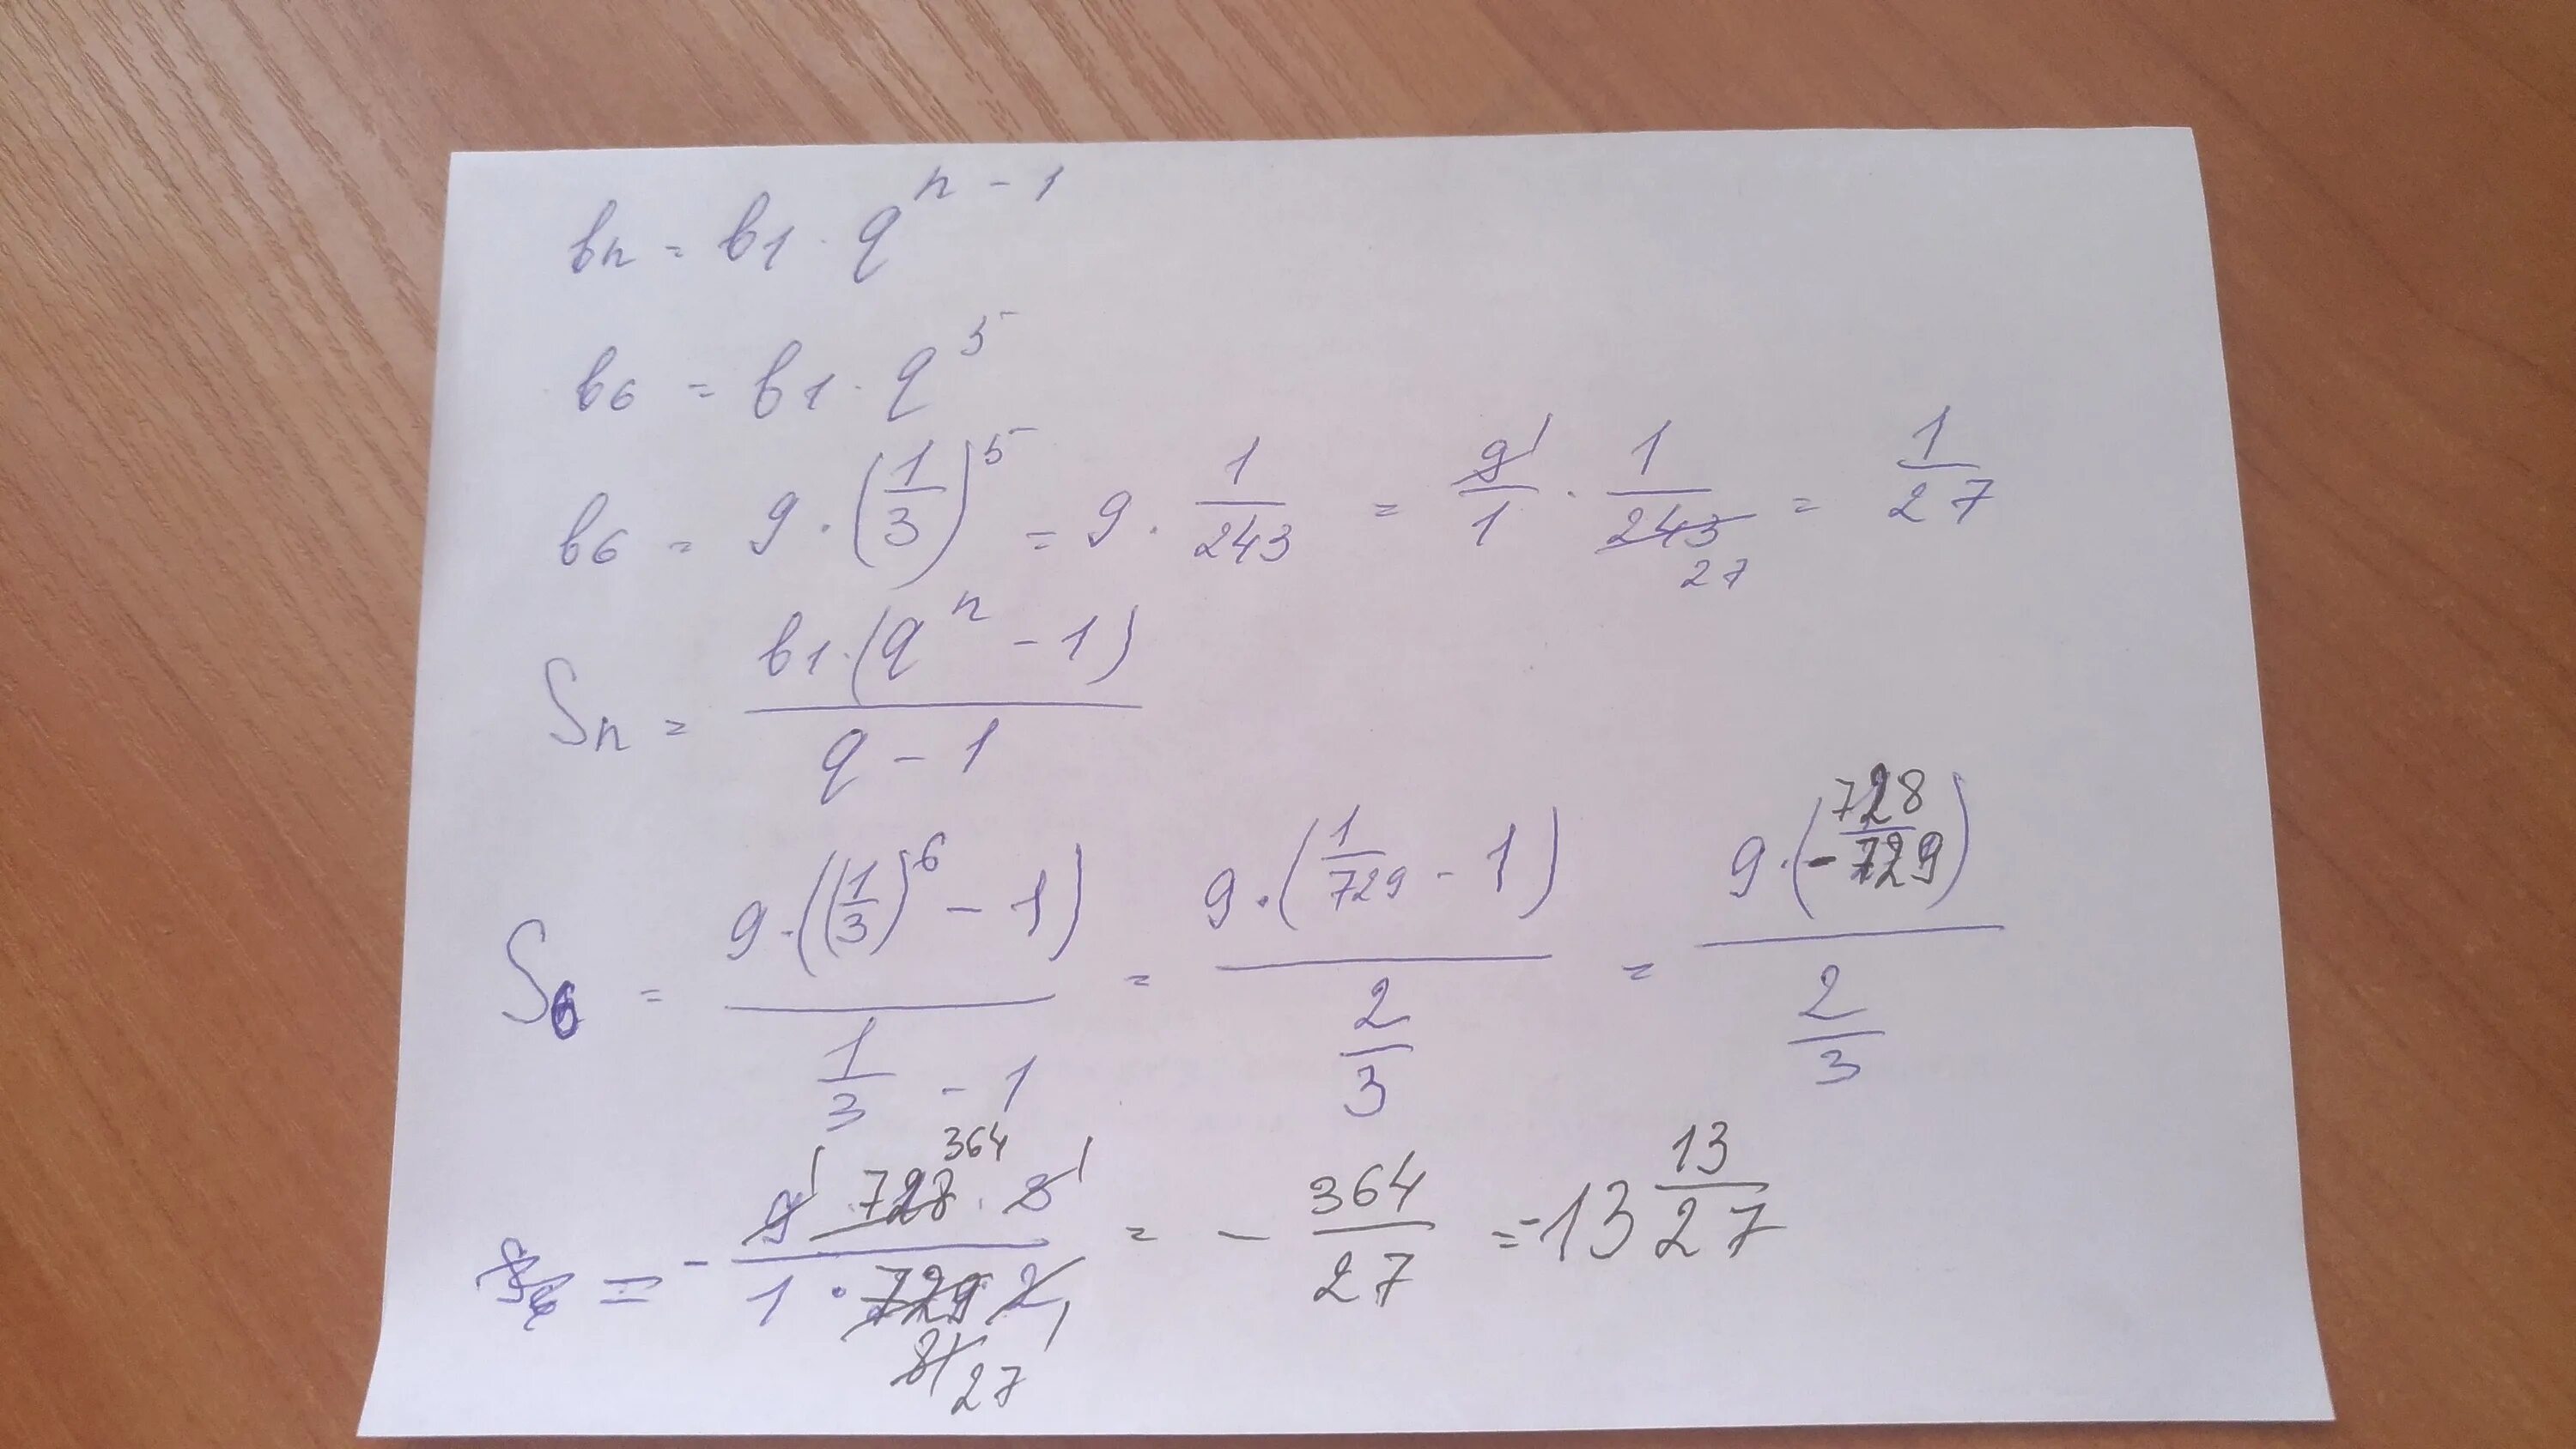 bn = b1 · q^(n - 1)
b6 = b1 · q^5
b6 = 9 · (1/3)^5 = 9 · 1/243 = 9/1 · 1/243 = 1/27
1
27
Sn = b1 · (q^n - 1) / (q - 1)
S6 = 9 · ((1/3)^6 - 1) / (1/3 - 1) = 9 · (1/729 - 1) / (2/3) = 9 · (- 728/729) / (2/3)
S6 = - (9 · 728 · 3) / (1 · 729 · 2) = - 364/27 = -13 13/27
1 364 1
81 1
27